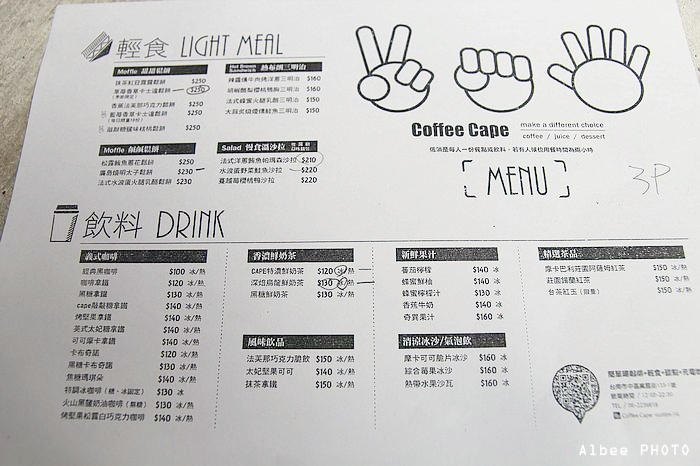 輕食 LIGHT MEAL
Moffle 甜甜鬆餅
抹茶紅豆霜霜鬆餅 $250
草莓香草卡士達鬆餅 $250
香蕉法芙那巧克力鬆餅 $250
藍莓香草卡士達鬆餅 $250
$200
Moffle 鹹鹹鬆餅
松露鮪魚蔥花鬆餅 $250
廣島燒明太子鬆餅 $230
法式水波蛋火腿乳酪鬆餅 $230
Hot Brown Sandwich's 熱布朗三明治
辣醬燻牛肉烤洋蔥三明治 $160
胡椒酪梨櫻桃鴨胸三明治 $160
法式蜂蜜火腿乳酪三明治 $150
大蒜炙燒燻鮭魚三明治 $150
Salad 慢食溫沙拉
法式洋蔥鮪魚帕瑪森沙拉 $210
水波蛋野菜鮭魚沙拉 $220
蔓越莓櫻桃鴨沙拉 $220
Coffee Cape
make a different choice
coffee / juice / dessert
低消是每人一份餐點或飲料，若有人候位用餐時間為兩小時
MENU
3P
飲料 DRINK
義式咖啡
經典黑咖啡 $100 冰/熱
咖啡拿鐵 $120 冰/熱
黑糖拿鐵 $130 冰/熱
cape敲敲糖拿鐵 $140 冰/熱
烤堅果拿鐵 $140 冰/熱
英式太妃糖拿鐵 $140 冰/熱
可可摩卡拿鐵 $140 冰/熱
卡布奇諾 $120 冰/熱
黑糖卡布奇諾 $130 冰/熱
焦糖瑪琪朵 $140 冰/熱
特調冰咖啡（糖、冰固定） $130 冰
火山黑鹽奶油咖啡（無糖） $130 冰/熱
烤堅果松露白巧克力咖啡 $140 冰/熱
香濃鮮奶茶
CAPE特濃鮮奶茶 $120 冰/熱
深焙烏龍鮮奶茶 $130 冰/熱
黑糖鮮奶茶 $130 冰/熱
風味飲品
法芙那巧克力脆飲 $150 冰/熱
太妃堅果可可 $140 冰/熱
抹茶拿鐵 $150 冰/熱
新鮮果汁
蕃茄檸檬 $140 冰
蜂蜜鮮柚 $140 冰
蜂蜜檸檬汁 $130 冰
香蕉牛奶 $140 冰
奇異果汁 $160 冰
清涼冰沙/氣泡飲
摩卡可可脆片冰沙 $160 冰
綜合莓果冰沙 $160 冰
熱帶水果沙瓦 $160 冰
精選茶品
摩卡巴利莊園阿薩姆紅茶 $150 冰/熱
莊園錫蘭紅茶 $150 冰/熱
台茶紅玉（限量） $150 冰/熱
Albee PHOTO